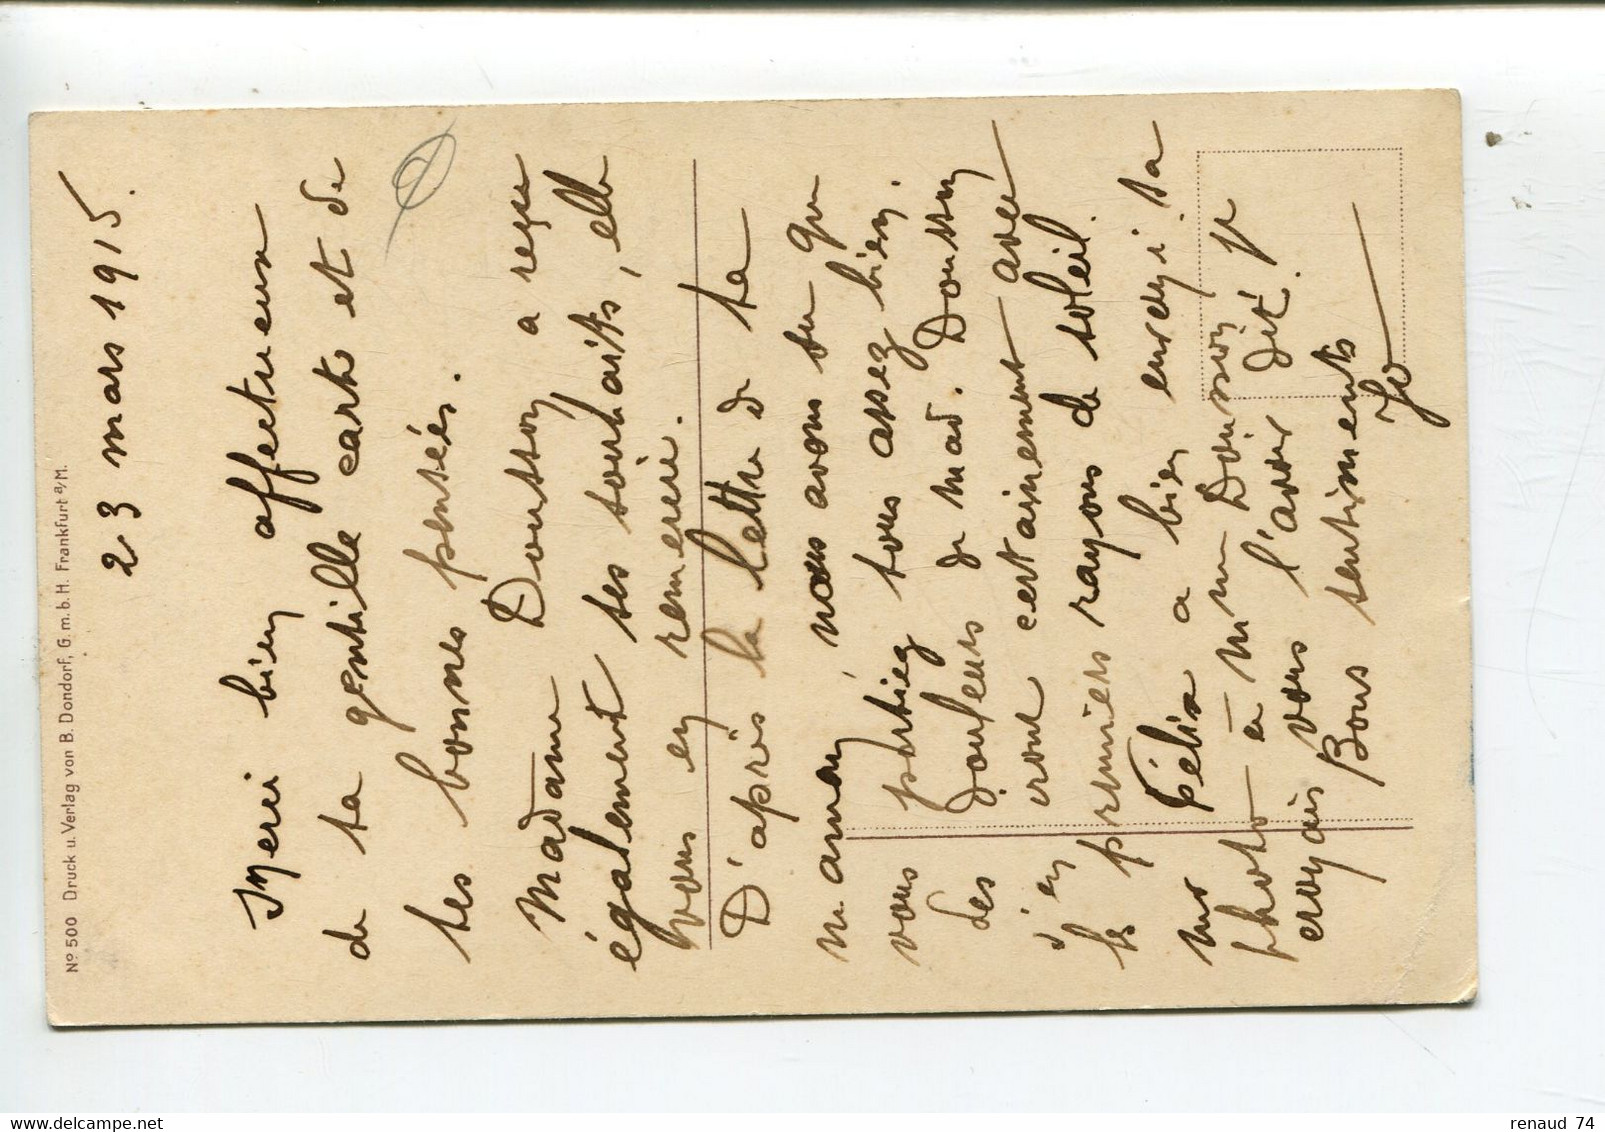 Nº 500 Druck u. Verlag von B. Dondorf, G.m.b.H. Frankfurt a/M.
23 mars 1915.
Merci bien affectueux
de ta gentille carte et de
tes bonnes pensées.
Madame Dousson a reçu
également tes souhaits, elle
vous en remercie.
D'après la lettre de ta
maman nous avons su que
vous portiez tous assez bien.
Les douleurs de mad. Dousson
j'en crois certainement avec
les premiers rayons de soleil.
Mr Félix a bien envoyé sa
photo à Mme Dousson je
croyais vous l'avoir dit.
Bons sentiments
Jo
renaud 74